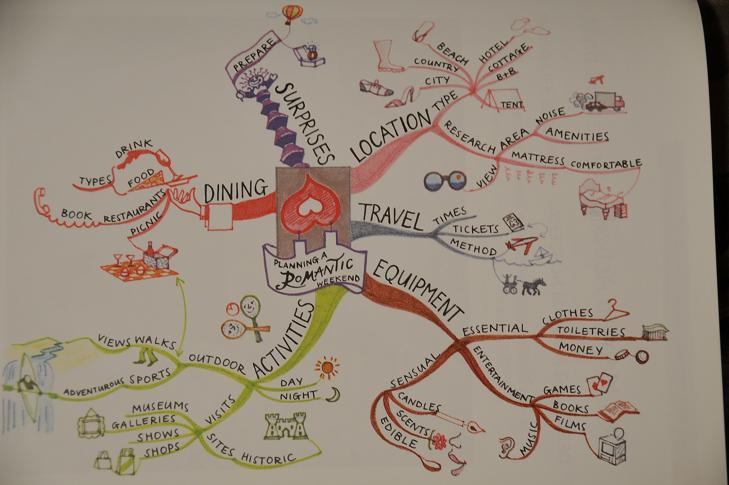 PLANNING A
ROMANTIC
WEEKEND
SURPRISES
PREPARE
LOCATION
TYPE
BEACH
COUNTRY
CITY
HOTEL
COTTAGE
B+B
TENT
RESEARCH
AREA
NOISE
AMENITIES
MATTRESS COMFORTABLE
VIEW
TRAVEL
TIMES
TICKETS
METHOD
EQUIPMENT
ESSENTIAL
CLOTHES
TOILETRIES
MONEY
ENTERTAINMENT
GAMES
BOOKS
FILMS
MUSIC
SENSUAL
CANDLES
SCENTS
EDIBLE
ACTIVITIES
DAY
NIGHT
OUTDOOR
VIEWS WALKS
ADVENTUROUS SPORTS
VISITS
MUSEUMS
GALLERIES
SHOWS
SHOPS
SITES HISTORIC
DINING
DRINK
TYPES
FOOD
BOOK RESTAURANTS
PICNIC